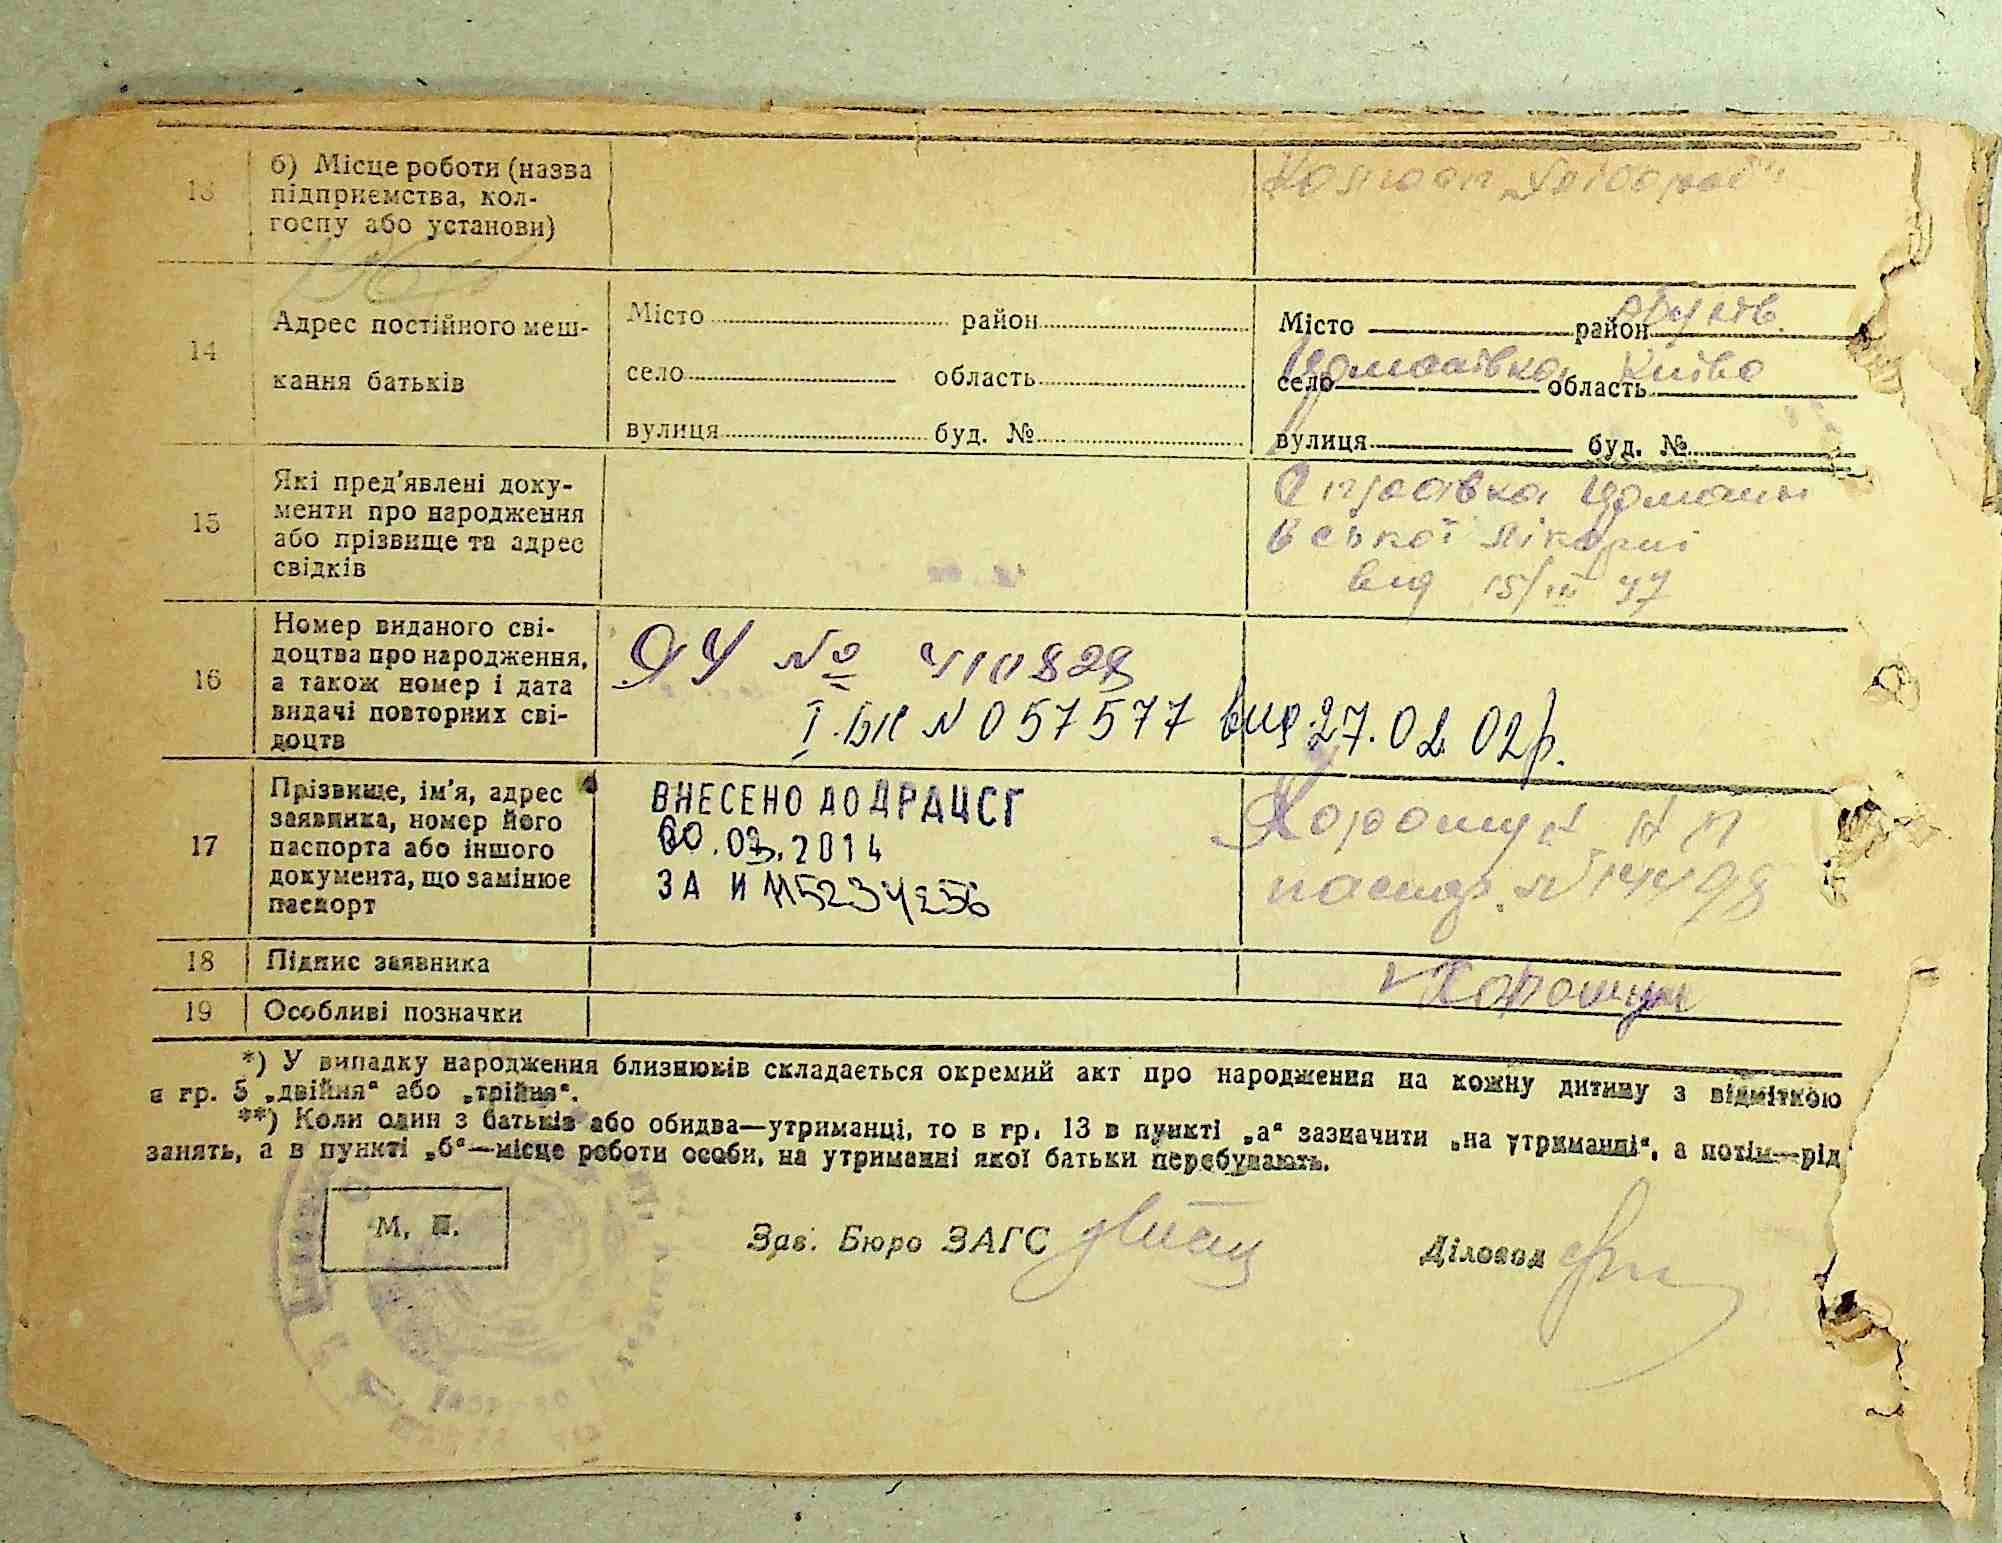 13
б) Місце роботи (назва
підприємства, кол-
госпу або установи)
14
Адрес постійного меш-
кання батьків
Місто район
село область
вулиця буд. №
Місто район
село область Київо
вулиця буд. №
15
Які пред'явлені доку-
менти про народження
або прізвище та адрес
свідків
Справка
вської лікарні
від 15/III 47
16
Номер виданого сві-
доцтва про народження,
а також номер і дата
видачі повторних сві-
доцтв
№ 410828
І-БК № 057577 вид. 27.02 02р.
17
Прізвище, ім'я, адрес
заявника, номер його
паспорта або іншого
документа, що замінює
паспорт
ВНЕСЕНО ДО ДРАЦСГ
.03.2014
ЗА И
Хорошун
паспор. № 14498
18
Підпис заявника
Хорошун
19
Особливі позначки
*) У випадку народження близнюків складається окремий акт про народження на кожну дитину з відміткою
в гр. 5 „двійня“ або „трійня“.
**) Коли один з батьків або обидва—утриманці, то в гр. 13 в пункті „а“ зазначити „на утриманні“, а потім—рід
занять, а в пункті „б“—місце роботи особи, на утриманні якої батьки перебувають.
М. П.
Зав. Бюро ЗАГС
Діловод